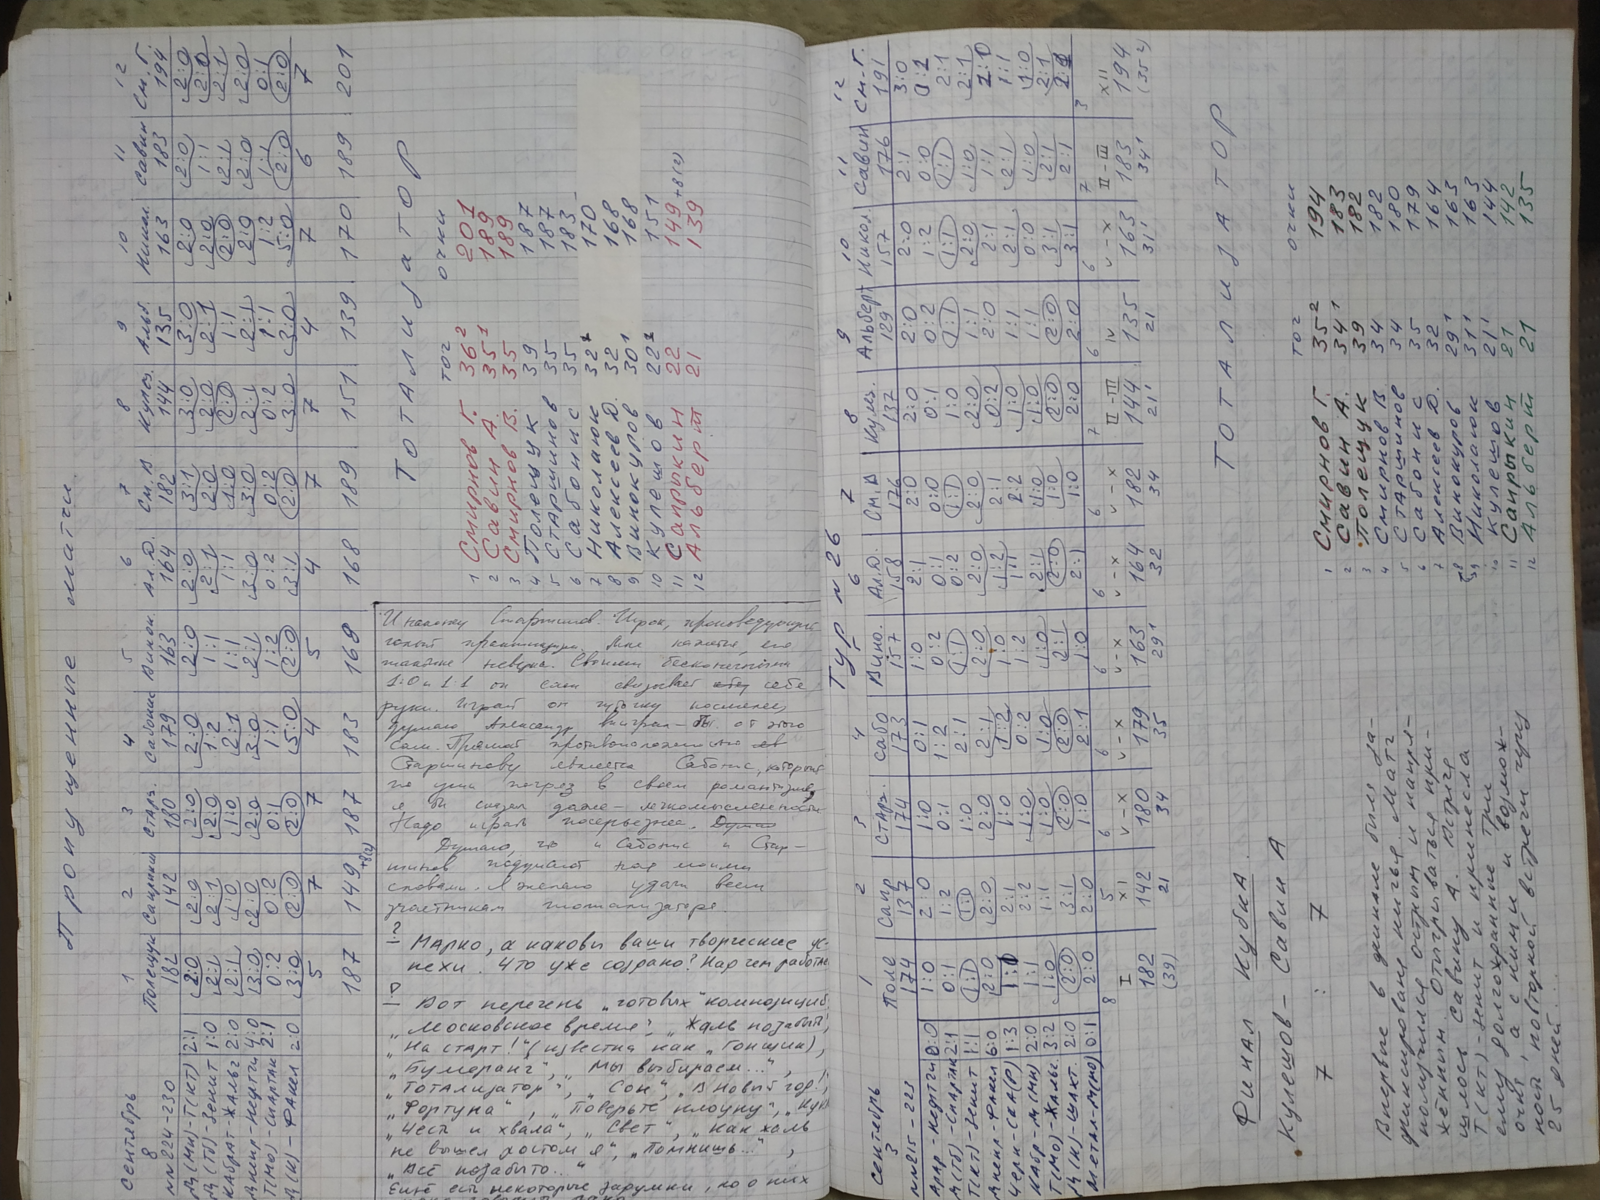 Пропущенные матчи.
Сентябрь
8
1 2 3 4 5 6 7 8 9 10 11 12
Полещук Сапрыкин Старш. Сабонис Винок. Ал.Д. См.В Кулеш. Альб. Никол. Савин См.Г.
nn 224-230 182 142 180 179 163 164 182 144 135 163 183 194
Д(Мн)-Т(Кт) 2:1 2:0 2:0 2:0 2:0 2:0 2:0 3:1 3:0 3:0 2:0 2:0 2:0
Д(Тб)-Зенит 1:0 2:1 2:1 2:0 1:2 1:1 2:1 2:0 2:0 2:1 2:0 1:1 2:0
Кайрат-Жальг 2:0 2:1 1:0 1:0 2:1 1:1 1:1 1:0 2:0 1:1 2:0 2:1 2:1
Днепр-Нефтчи 4:0 3:0 2:0 2:0 3:0 2:1 3:0 3:0 2:1 2:1 2:0 2:0 2:0
Т(Мо)-Спартак 2:1 0:2 0:2 0:1 1:1 1:2 0:2 0:2 0:2 1:1 1:2 1:1 0:1
Д(К)-Факел 2:0 3:0 2:0 2:0 5:0 2:0 3:1 2:0 3:0 3:0 5:0 2:0 2:0
5 7 7 4 5 4 7 7 4 7 6 7
187 149+8(2) 187 183 168 168 189 151 139 170 189 201
Тотализатор
тог очки
1 Смирнов Г. 36² 201
2 Савин А. 35¹ 189
3 Смирнов В. 35 189
4 Полещук 39 187
5 Старшинов 35 187
6 Сабонис 35 183
7 Николаюк 32 170
8 Алексеев Д. 32 168
9 Винокуров 30¹ 168
10 Кулешов 22 151
11 Сапрыкин 22 149+8(2)
12 Альберт 21 139
И наконец Старшинов. Игрок, производящий
1:0 и 1:1 он сам связывает себе
руки. Играй он чуточку посмелее,
думаю Александр выиграл бы от этого
сам. Прямой противоположностью
Старшинову является Сабонис, который
по уши погряз в своем романтизме,
я бы сказал даже - легкомысленности.
Надо играть посерьезнее.
Думаю, что и Сабонис и Стар-
шинов подумают над моими
словами. Я желаю удачи всем
участникам тотализатора.
?
- Марко, а каковы ваши творческие ус-
пехи. Что уже создано? Над чем работае
- Вот перечень „готовых" композиций
„Московское время", „Жаль позабыт
„На старт!" (известна как „Гонщик),
„Бумеранг", „Мы выбираем...",
„Тотализатор", „Сон", „В Новый год
„Фортуна", „Поверьте клоуну",
„Честь и хвала", „Свет", „Как жаль
не вышел ростом я", „Помнишь...",
„Всё позабыто..."
Ещё есть некоторые задумки, но о них
Тур n 26
Сентябрь
3
1 2 3 4 5 6 7 8 9 10 11 12
Поле Сапр Старш. Сабо Вино. Ал.Д. См.В Кулш. Альберт Никол Савин См-Г.
nn 215-223 174 137 174 173 157 158 176 137 129 157 176 191
Арар-Нефтчи 0:0 1:0 2:0 1:0 0:1 1:0 2:1 2:0 2:0 2:0 2:0 2:1 3:0
Д(Тб)-Спартак 2:1 0:1 1:2 0:1 1:2 0:2 0:1 0:0 0:1 0:2 1:2 0:0
Т(Кт)-Зенит 1:1 1:1 1:1 1:0 2:1 1:1 0:2 1:1 1:0 1:1 1:1 1:1 2:1
Днепр-Факел 6:0 2:0 2:0 2:0 2:1 2:0 2:0 2:0 2:0 1:1 2:0 1:0 2:1
Черн-СКА(Р) 1:3 1:0 2:1 1:0 1:2 1:0 1:2 2:1 0:2 2:0 2:1 1:1 1:0
Кайр-Д(Мн) 2:0 1:1 2:2 1:0 0:2 1:2 1:1 2:2 1:0 1:1 2:1 2:1 1:1
Т(Мо)-Жальг. 3:2 1:0 1:1 1:0 1:0 1:0 2:1 1:0 1:0 1:1 0:0 1:0 1:0
Д(К)-Шахт. 2:0 2:0 3:1 2:0 2:0 2:1 2:0 1:0 2:0 2:0 3:1 2:1 2:1
Метал-М(Мо) 0:1 2:0 2:0 1:0 2:1 1:0 2:1 1:0 2:0 2:0 3:1 2:1
8 5 6 6 6 6 6 7 6 6 7 3
I XI V-X V-X V-X V-X V-X II-III IV V-X II-III XII
182 142 180 179 163 164 182 144 135 163 183 194
(39) 21 34 35 29¹ 32 34 21¹ 21 31¹ 34¹ (35²)
Тотализатор
тог очки
1 Смирнов Г. 35² 194
2 Савин А. 34¹ 183
3 Полещук 39 182
4 Смирнов В 34 182
5 Старшинов 34 180
6 Сабонис 35 179
7 Алексеев Д. 32 164
8 Винокуров 29¹ 163
9 Николаюк 31¹ 163
10 Кулешов 21¹ 144
11 Сапрыкин 21 142
12 Альберт 21 135
Финал Кубка.
Кулешов - Савин А
7 : 7
Впервые в финале была за-
фиксирована ничья. Матч
получился острым и напря-
жённым. Отыгрываться при-
шлось Савину А. Встреча
Т(Кт)-Зенит и принесла
ему долгожданные три
очк, а с ними и возмож-
ность повторной встречи через
25 дней...